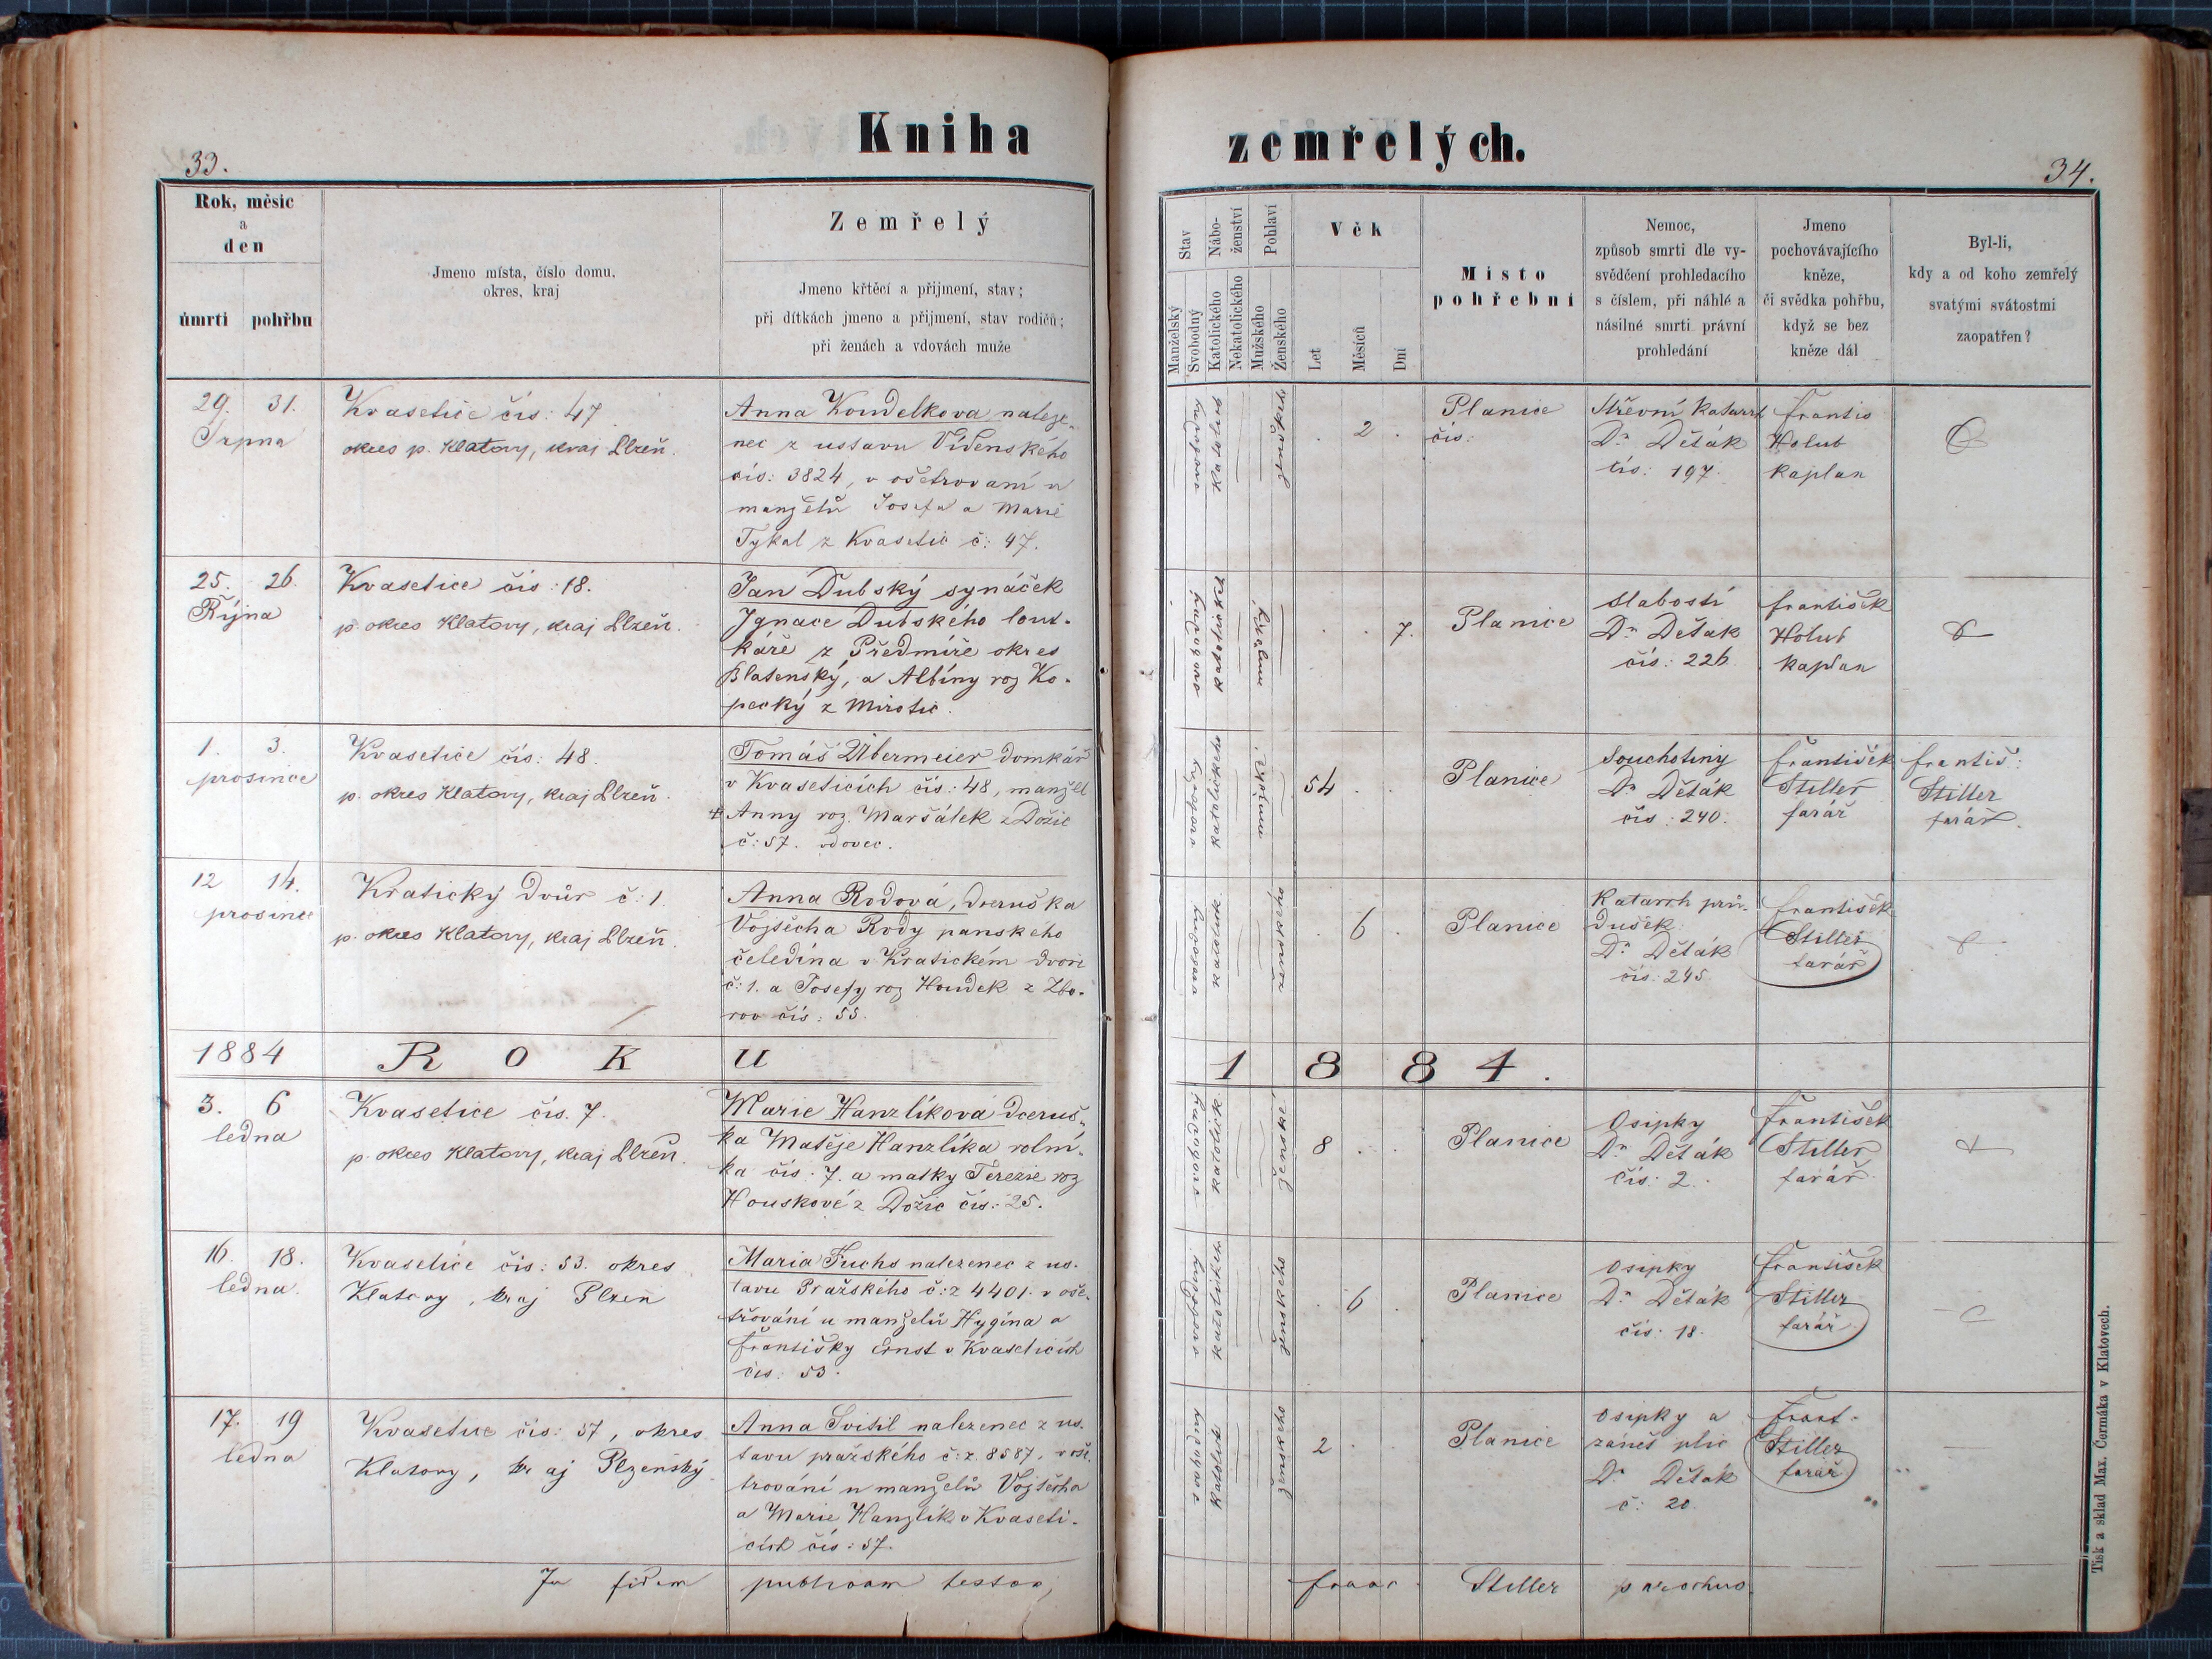 Kniha zemřelých.
33.
34.
Rok, měsíc
a
den
úmrtí pohřbu
Jmeno místa, číslo domu,
okres, kraj
Zemřelý
Jmeno křtěcí a přijmení, stav;
při dítkách jmeno a přijmení, stav rodičů;
při ženách a vdovách muže
Stav
Manželský
Svobodný
Nábo-
ženství
Katolického
Nekatolického
Pohlaví
Mužského
Ženského
Věk
Let
Měsíců
Dní
Místo
pohřební
Nemoc,
způsob smrti dle vy-
svědčení prohledacího
s číslem, při náhlé a
násilné smrti právní
prohledání
Jmeno
pochovávajícího
kněze,
či svědka pohřbu,
když se bez
kněze dál
Byl-li,
kdy a od koho zemřelý
svatými svátostmi
zaopatřen?
29. 31.
Srpna
Kvasetice čís: 47
okres p. Klatovy, kraj Plzeň.
Anna Koudelkova naleze-
nec z ustavu Vídenského
čís: 3824, v ošetrovaní u
manželů Josefa a Marie
Tykal z Kvasetic č: 47.
svobodná
Katolick
ženského
2
Planice
čís:
Střevní Katarrh
Dr Deťák
čís: 197.
Frantis
Holub
Kaplan
25. 26.
Října
Kvasetice čís: 18.
p. okres Klatovy, kraj Plzeň.
Jan Dubský synáček
Ignace Dubského lout-
káře z Předmíře okres
Blatenský, a Albíny roz Ko-
pecký z Mirotic.
svobodný
Katolické
mužský
7.
Planice
Slabostí
Dr Deťak
čís: 226.
František
Holub
Kaplan
1. 3.
prosince
Kvasetice čís: 48.
p. okres Klatovy, kraj Plzeň.
Tomáš Übermeier domkář
v Kvaseticích čís: 48, manžel
+ Anny roz. Maršálek z Dožic
č: 57. vdovec.
Katolického
54
Planice
Souchotiny
Dr Deťák
čís: 240.
František
Stiller
farář
Františ:
Stiller
farář.
12 14.
prosince
Kratický Dvůr č: 1.
p. okres Klatovy, kraj Plzeň.
Anna Rodová, dceruška
Vojtěcha Rody panskeho
čeledína v Kratickém dvoře
č: 1. a Josefy roz Houdek z Zbo-
rov čís: 55.
svobodná
katolick.
ženského
6
Planice
Katarrh prů-
dušek
Dr Deťák
čís: 245.
František
Stiller
farář
1884 ROKU 1884.
3. 6
ledna
Kvasetice čís. 7.
p. okres Klatovy, kraj Plzeň.
Marie Hanzlíkova dceruš-
ka Matěje Hanzlíka rolní-
ka čís: 7. a matky Terezie roz
Houskové z Dožic čís: 25.
svobodná
katolick.
ženské
8
Planice
Osipky
Dr Deťák
čís: 2.
František
Stiller
farář
16. 18.
ledna.
Kvasetice čís: 53. okres
Klatovy, kraj Plzeň
Maria Fuchs nalezenec z us-
tavu Pražského č: z 4401. v oše-
třování u manželů Hygína a
Františky Ernst v Kvaseticích
čís: 53.
svobodný
katolick.
ženského
6
Planice
Osipky
Dr Deťák
čís: 18.
František
Stiller
farář
17. 19
ledna
Kvasetice čís: 57, okres
Klatovy, kraj Plzeňský
Anna Svitil nalezenec z us-
tavu pražského č: z. 8587. v oše-
trování u manželů Vojtěcha
a Marie Hanzlík v Kvaseti-
cích čís: 57.
svobodná
Katolick
ženskeho
2
Planice
Osipky a
zánět plic
Dr Deťák
č: 20.
Frant.
Stiller
farář
In fidem publicam testor, Franc. Stiller parochus.
Tisk a sklad Max. Čermáka v Klatovech.